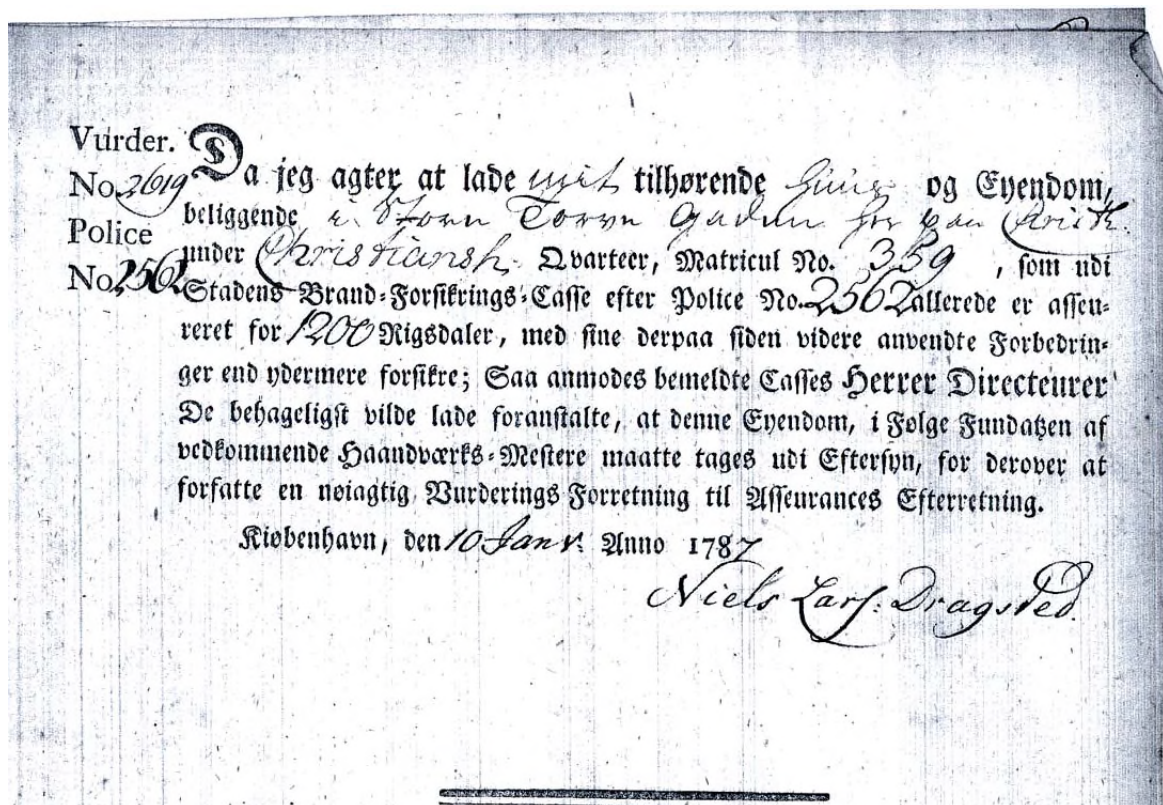 Vurder.
No 2619
Police
No. 2562
Da jeg agter at lade mit tilhørende Huus og Eyendom,
beliggende i Store Torve Gaden her paa Christh.
under Christiansh. Qvarteer, Matricul No. 359, som udi
Stadens Brand-Forsikrings-Casse efter Police No. 2562 allerede er asseu-
reret for 1200 Rigsdaler, med sine derpaa siden videre anvendte Forbedrin-
ger end ydermere forsikre; Saa anmodes bemeldte Casses Herrer Directeurer
De behageligst vilde lade foranstalte, at denne Eyendom, i Følge Fundatzen af
vedkommende Haandværks-Mestere maatte tages udi Eftersyn, for derover at
forfatte en nøiagtig Vurderings Forretning til Asseurances Efterretning.
Kiøbenhavn, den 10 Janv. Anno 1787
Niels Lars. Dragsted.